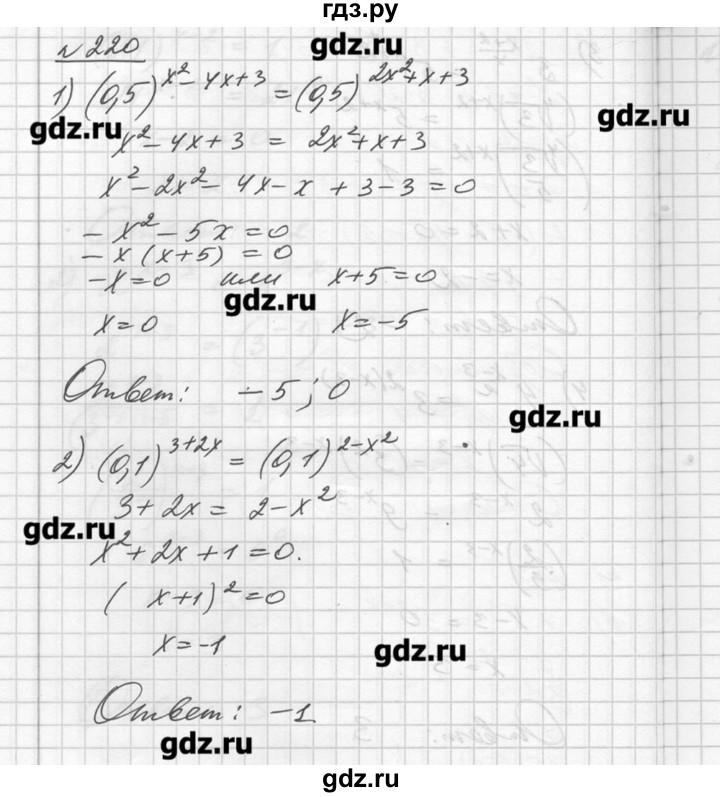 гдз.ру
№ 220
gdz.ru
1) (0,5)^{x²-4x+3} = (0,5)^{2x²+x+3}
gdz.ru
gdz.ru
x²-4x+3 = 2x²+x+3
x²-2x²-4x-x+3-3=0
-x²-5x=0
-x(x+5)=0
-x=0 или x+5=0
gdz.ru
x=0 x=-5
Ответ: -5; 0
gdz.ru
2) (0,1)^{3+2x} = (0,1)^{2-x²}
3+2x = 2-x²
gdz.ru
x²+2x+1=0.
(x+1)²=0
x=-1
gdz.ru
Ответ: -1
gdz.ru
gdz.ru